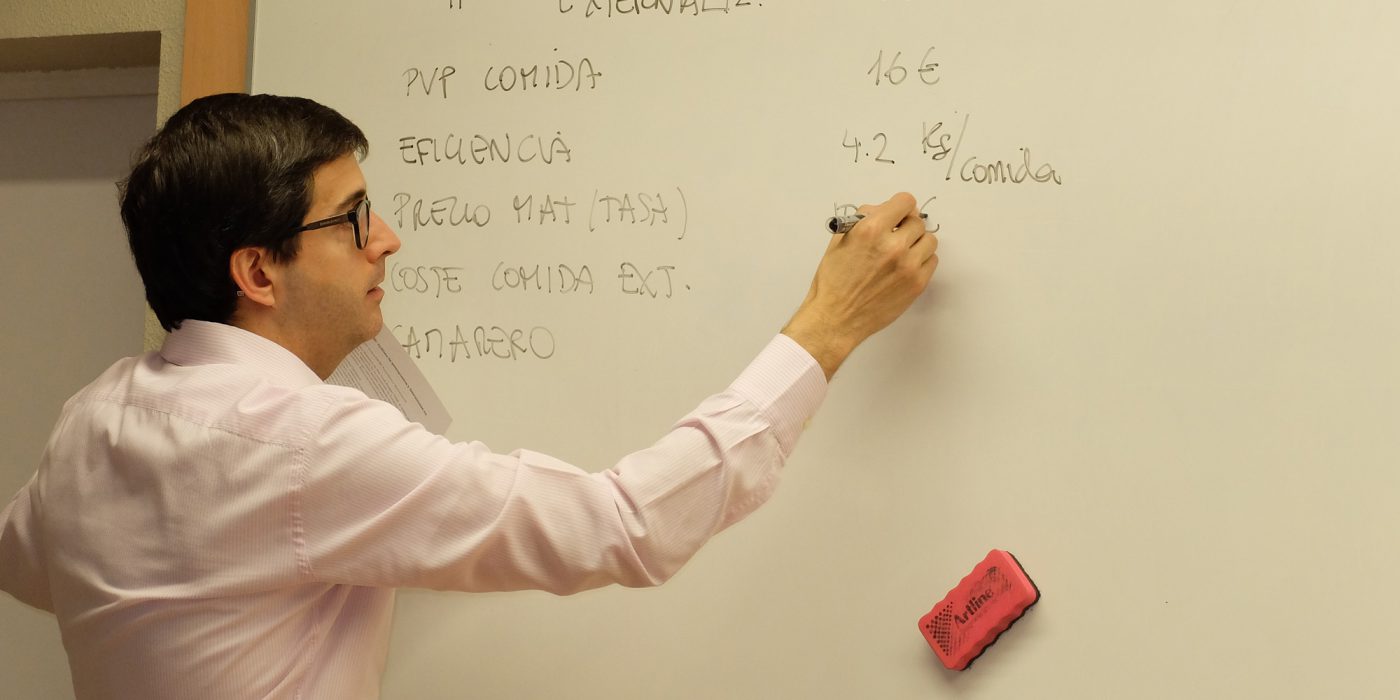 EXTERNALIZ.
PVP COMIDA 16 €
EFICIENCIA 4.2 Kg/comida
PRECIO MAT (TASA) €
COSTE COMIDA EXT.
CAMARERO
Artline